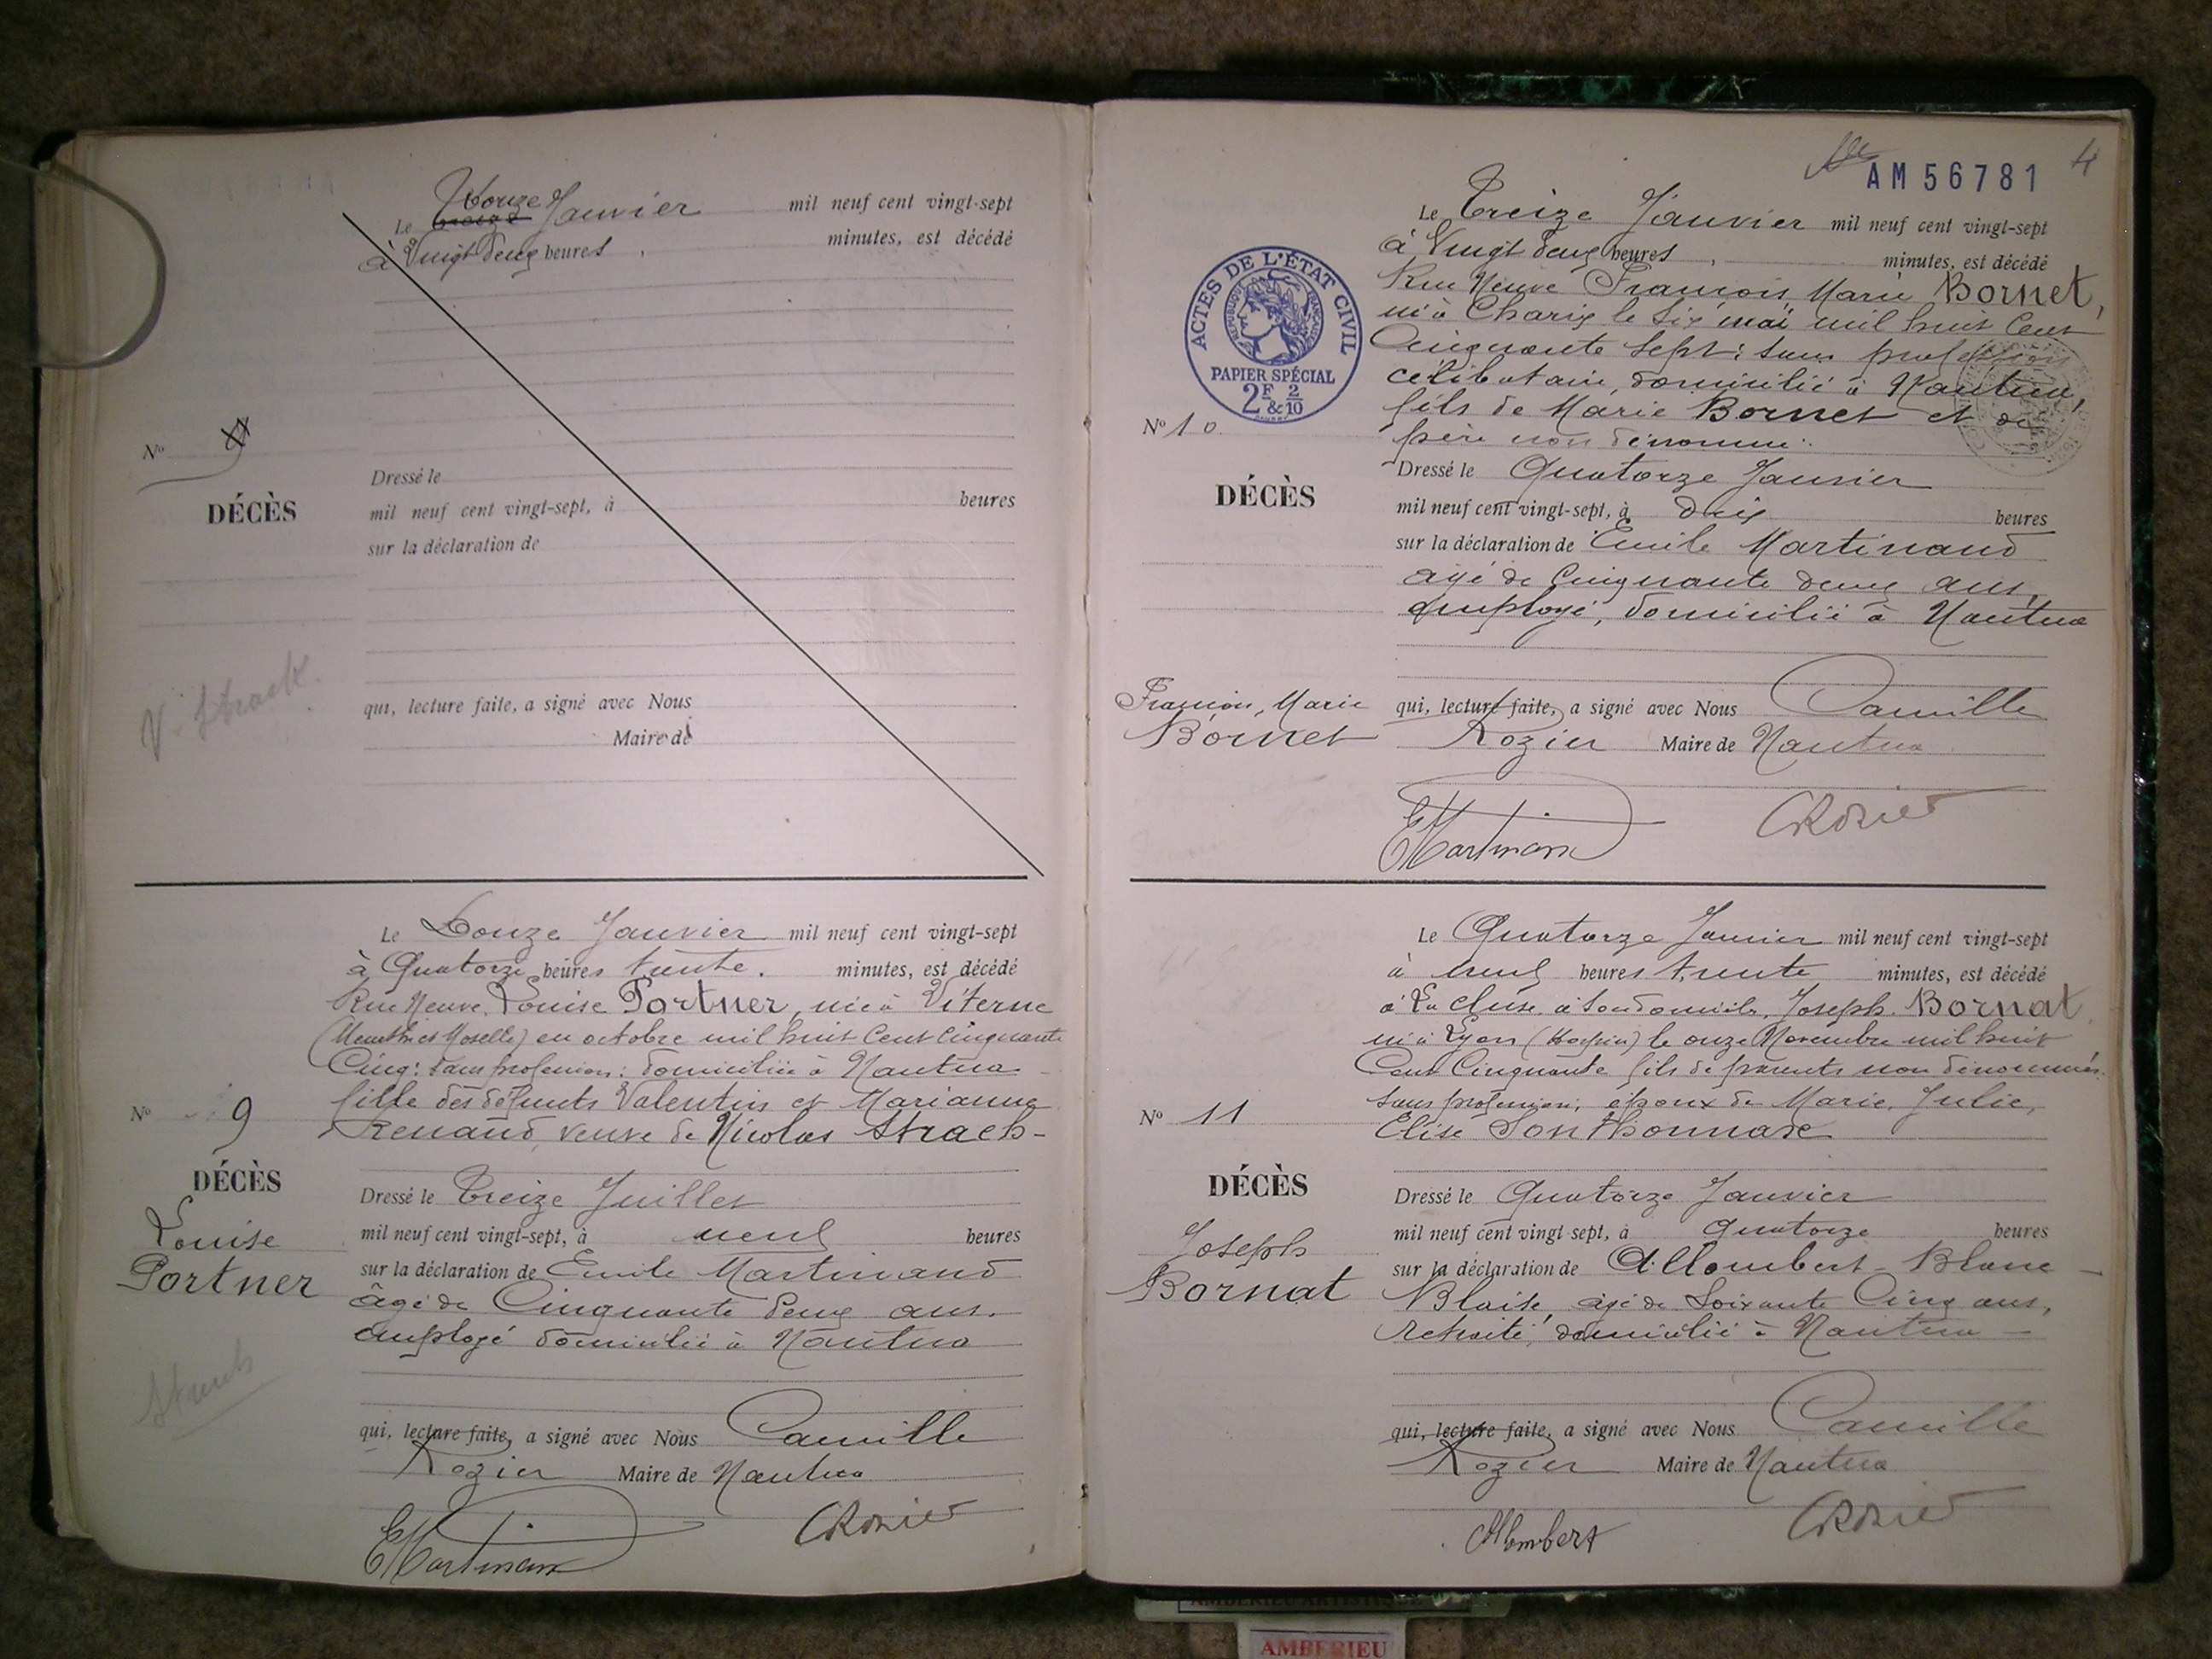 Le treize Douze Janvier mil neuf cent vingt-sept
à Vingt deux heures minutes, est décédé
No 9
Dressé le
DÉCÈS
mil neuf cent vingt-sept, à heures
sur la déclaration de
V.
qui, lecture faite, a signé avec Nous
Maire de
Le Douze Janvier mil neuf cent vingt-sept
à Quatorze heures trente. minutes, est décédé
Rue Neuve, Louise Portner, née à Viterne
(Meurthe et Moselle) en octobre mil huit cent cinquante
Cinq: sans profession: domiciliée à Nantua
fille des défunts Valentin et Marianne
Renaud, veuve de Nicolas Strach-
No 9
DÉCÈS
Louise
Portner
Dressé le Treize Juillet
mil neuf cent vingt-sept, à neuf heures
sur la déclaration de Emile Martinand
âgé de Cinquante deux ans.
employé domicilié à Nantua
qui, lecture faite, a signé avec Nous Camille
Rozier Maire de Nantua
EMartinand CRozier
AM 56781 4
Le Treize Janvier mil neuf cent vingt-sept
à Vingt deux heures minutes, est décédé
Rue Neuve François, Marie Bornet,
né à Charix le six mai mil huit cent
Cinquante sept: sans profession
célibataire, domicilié à Nantua,
fils de Marie Bornet et de
père non dénommé:
ACTES DE L'ÉTAT CIVIL
REPUBLIQUE FRANÇAISE
PAPIER SPÉCIAL
2F & 2/10
No 10
DÉCÈS
François, Marie
Bornet
Dressé le Quatorze Janvier
mil neuf cent vingt-sept, à dix heures
sur la déclaration de Emile Martinand
âgé de Cinquante deux ans,
employé, domicilié à Nantua
qui, lecture faite, a signé avec Nous Camille
Rozier Maire de Nantua
EMartinand CRozier
Le Quatorze Janvier mil neuf cent vingt-sept
à neuf heures trente minutes, est décédé
à La Cluse à son domicile, Joseph Bornat
né à Lyon (Hospice) le onze Novembre mil huit
Cent Cinquante fils de parents non dénommés.
sans profession, époux de Marie, Julie,
Elise Sonthonnaxe
No 11
DÉCÈS
Joseph
Bornat
Dressé le Quatorze Janvier
mil neuf cent vingt-sept, à Quatorze heures
sur la déclaration de Allombert-Blanc
Blaise, âgé de Soixante Cinq ans,
retraité, domicilié à Nantua
qui, lecture faite, a signé avec Nous Camille
Rozier Maire de Nantua
Allombert CRozier
AMBERIEU